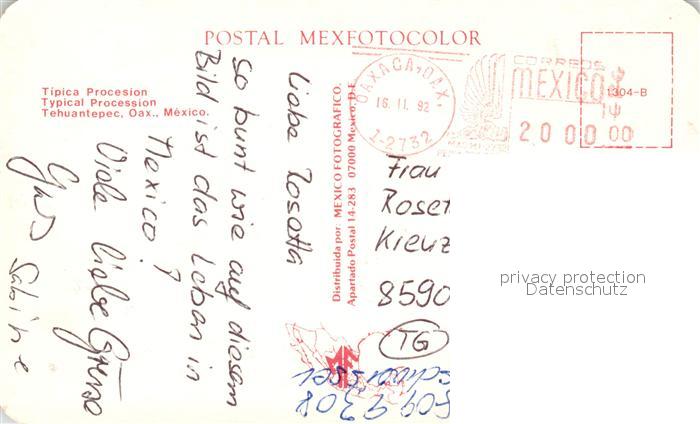 POSTAL MEXFOTOCOLOR
Típica Procesion
Typical Procession
Tehuantepec, Oax., México.
Liebe Rosetta
so bunt wie auf diesem
Bild ist das Leben in
Mexico!
Viele Liebe Grüsse
Sabine
Distribuida por: MEXICO FOTOGRAFICO.
Apartado Postal 14-283 07000 Mexico, D.F.
OAXACA, OAX.
16. II. 92
1-2732
CORREOS
MEXICO
2000.00
1304-B
Frau
Roset
Kreuz
8590
TG
privacy protection
Datenschutz
MF